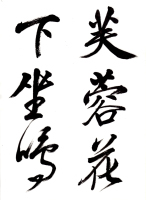 芙蓉花
下坐鸣